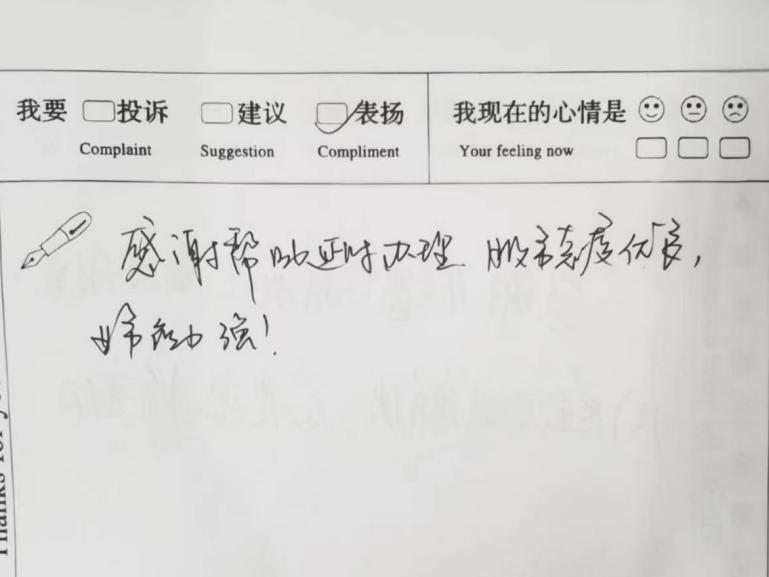 我要 投诉 建议 表扬 我现在的心情是
Complaint Suggestion Compliment Your feeling now
感谢帮助延时办理 服务态度优良，
业务能力强！